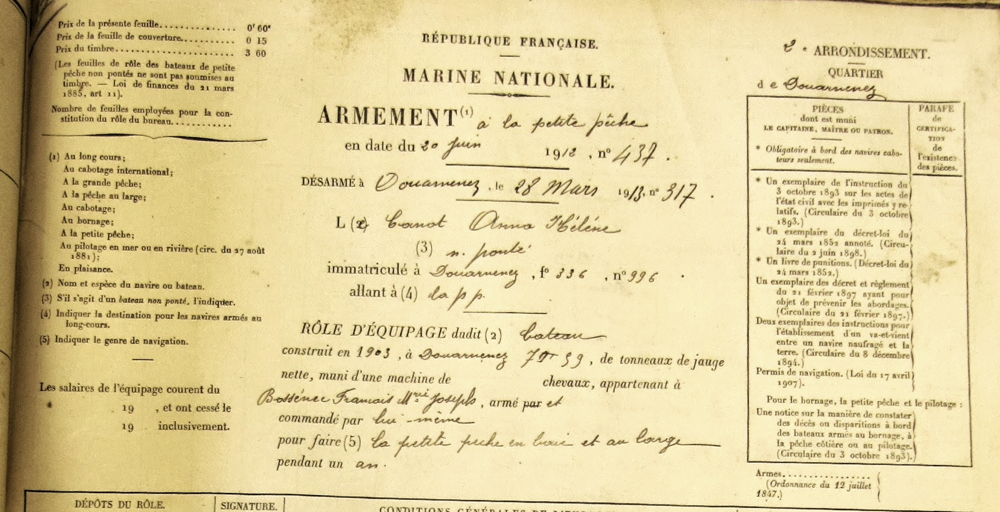 Prix de la présente feuille.............. 0ᶠ 60ᶜ
Prix de la feuille de couverture.......... 0 15
Prix du timbre.......................... 3 60
(Les feuilles de rôle des bateaux de petite
pêche non pontés ne sont pas soumises au
timbre. — Loi de finances du 21 mars
1885, art 11).
Nombre de feuilles employées pour la con-
stitution du rôle du bureau...........
(1) Au long cours;
Au cabotage international;
A la grande pêche;
A la pêche au large;
Au cabotage;
Au bornage;
A la petite pêche;
Au pilotage en mer ou en rivière (circ. du 27 août
1881);
En plaisance.
(2) Nom et espèce du navire ou bateau.
(3) S'il s'agit d'un bateau non ponté, l'indiquer.
(4) Indiquer la destination pour les navires armés au
long-cours.
(5) Indiquer le genre de navigation.
Les salaires de l'équipage courent du
19 , et ont cessé le
19 inclusivement.
RÉPUBLIQUE FRANÇAISE.
MARINE NATIONALE.
ARMEMENT (1) à la petite pêche
en date du 20 juin 1912, n° 437.
DÉSARMÉ à Douarnenez, le 28 Mars 1913, n° 317
L (2) Canot Anna Hélène
(3) n. ponté
immatriculé à Douarnenez, f° 336, n° 996.
allant à (4) la p.p.
RÔLE D'ÉQUIPAGE dudit (2) bateau
construit en 1903, à Douarnenez 7Tx 39, de tonneaux de jauge
nette, muni d'une machine de chevaux, appartenant à
François Joseph, armé par et
commandé par lui-même
pour faire (5) la petite pêche en baie et au large
pendant un an.
2e ARRONDISSEMENT.
QUARTIER
de Douarnenez
PIÈCES
dont est muni
LE CAPITAINE, MAÎTRE OU PATRON.
* Obligatoire à bord des navires cabo-
teurs seulement.
PARAFE
de
CERTIFICA-
TION
de
l'existence
des pièces.
* Un exemplaire de l'instruction du
3 octobre 1893 sur les actes de
l'état civil avec les imprimés y re-
latifs. (Circulaire du 3 octobre
1893.)
* Un exemplaire du décret-loi du
24 mars 1852 annoté. (Circu-
laire du 2 juin 1898.)
* Un livre de punitions. (Décret-loi du
24 mars 1852.)
Un exemplaire des décret et règlement
du 21 février 1897 ayant pour
objet de prévenir les abordages.
(Circulaire du 21 février 1897.)
Deux exemplaires des instructions pour
l'établissement d'un va-et-vient
entre un navire naufragé et la
terre. (Circulaire du 8 décembre
1894.)
Permis de navigation. (Loi du 17 avril
1907.)
Pour le bornage, la petite pêche et le pilotage :
Une notice sur la manière de constater
des décès ou disparitions à bord
des bateaux armés au bornage, à
la pêche côtière ou au pilotage.
(Circulaire du 3 octobre 1893).
Armes......................
(Ordonnance du 12 juillet
1847.)
DÉPÔTS DU RÔLE.
SIGNATURE.
CONDITIONS GÉNÉRALES